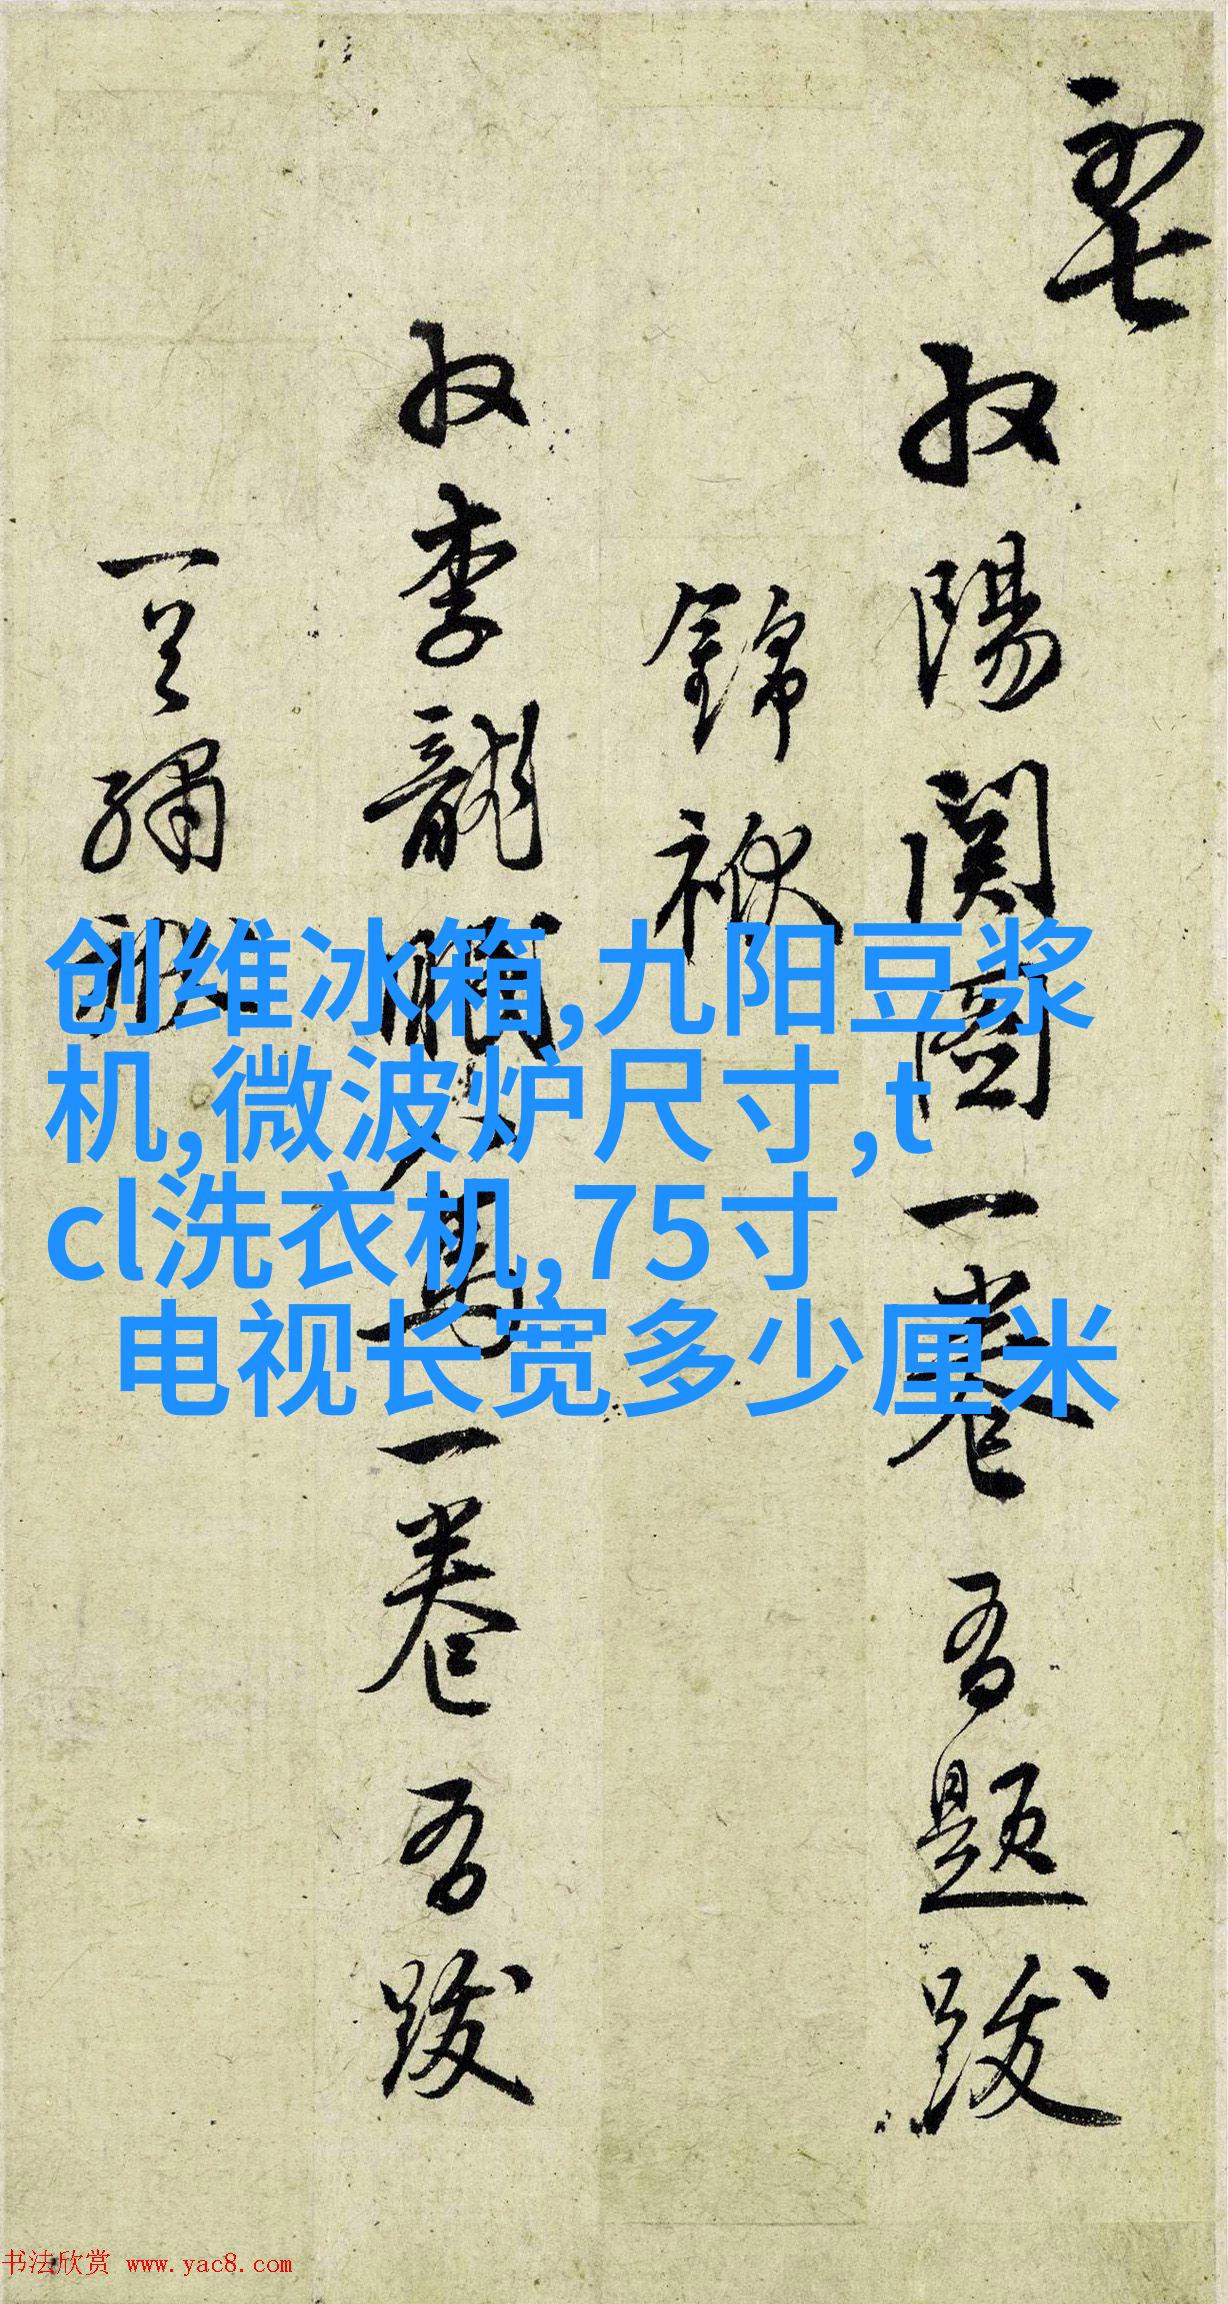 収陽関圖一卷 吾題跋
錦袱
収李龍眠人馬一卷 吾跋
一旦繡袱
创维冰箱,九阳豆浆
机,微波炉尺寸,t
cl洗衣机,75寸
电视长宽多少厘米
书法欣赏 www.yac8.com